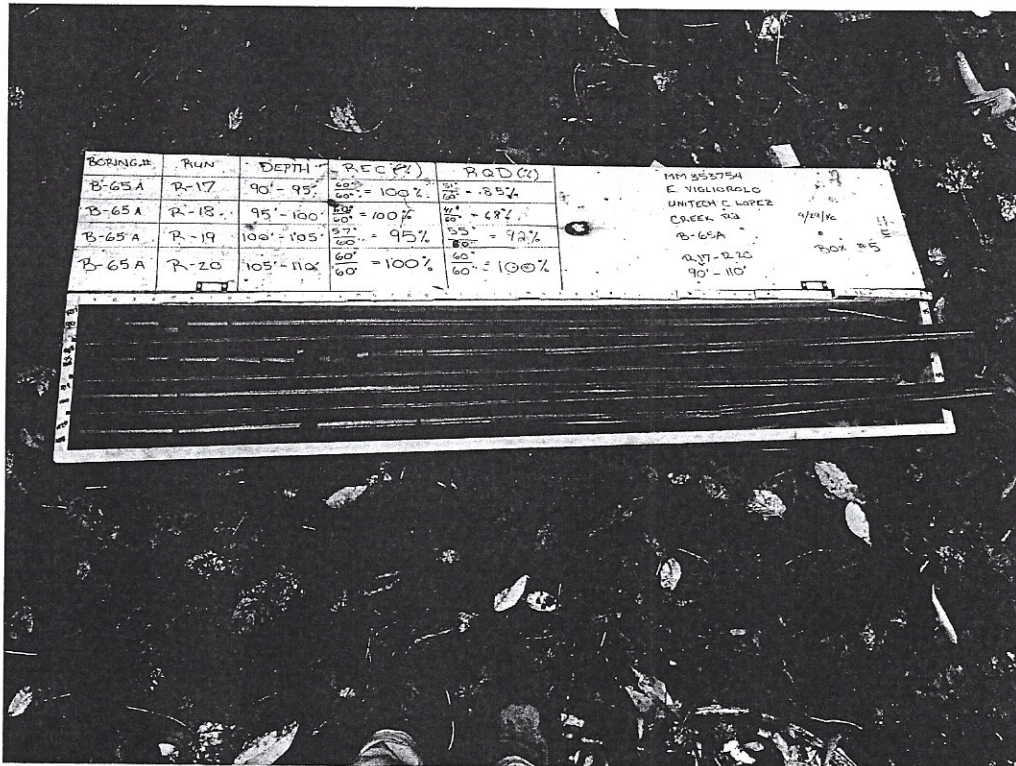 BORING# RUN DEPTH REC (%) RQD (%)
B-65A R-17 90'-95' 60"/60" = 100% 51"/60" = 85%
B-65A R-18 95'-100' 60"/60" = 100% 41"/60" = 68%
B-65A R-19 100'-105' 57"/60" = 95% 55"/60" = 92%
B-65A R-20 105'-110' 60"/60" = 100% 60"/60" = 100%
MM 353754
E. VIGLIOROLO
UNITECH C. LOPEZ
CREEK RD
B-65A
R17-R20
90'-110'
BOX #5